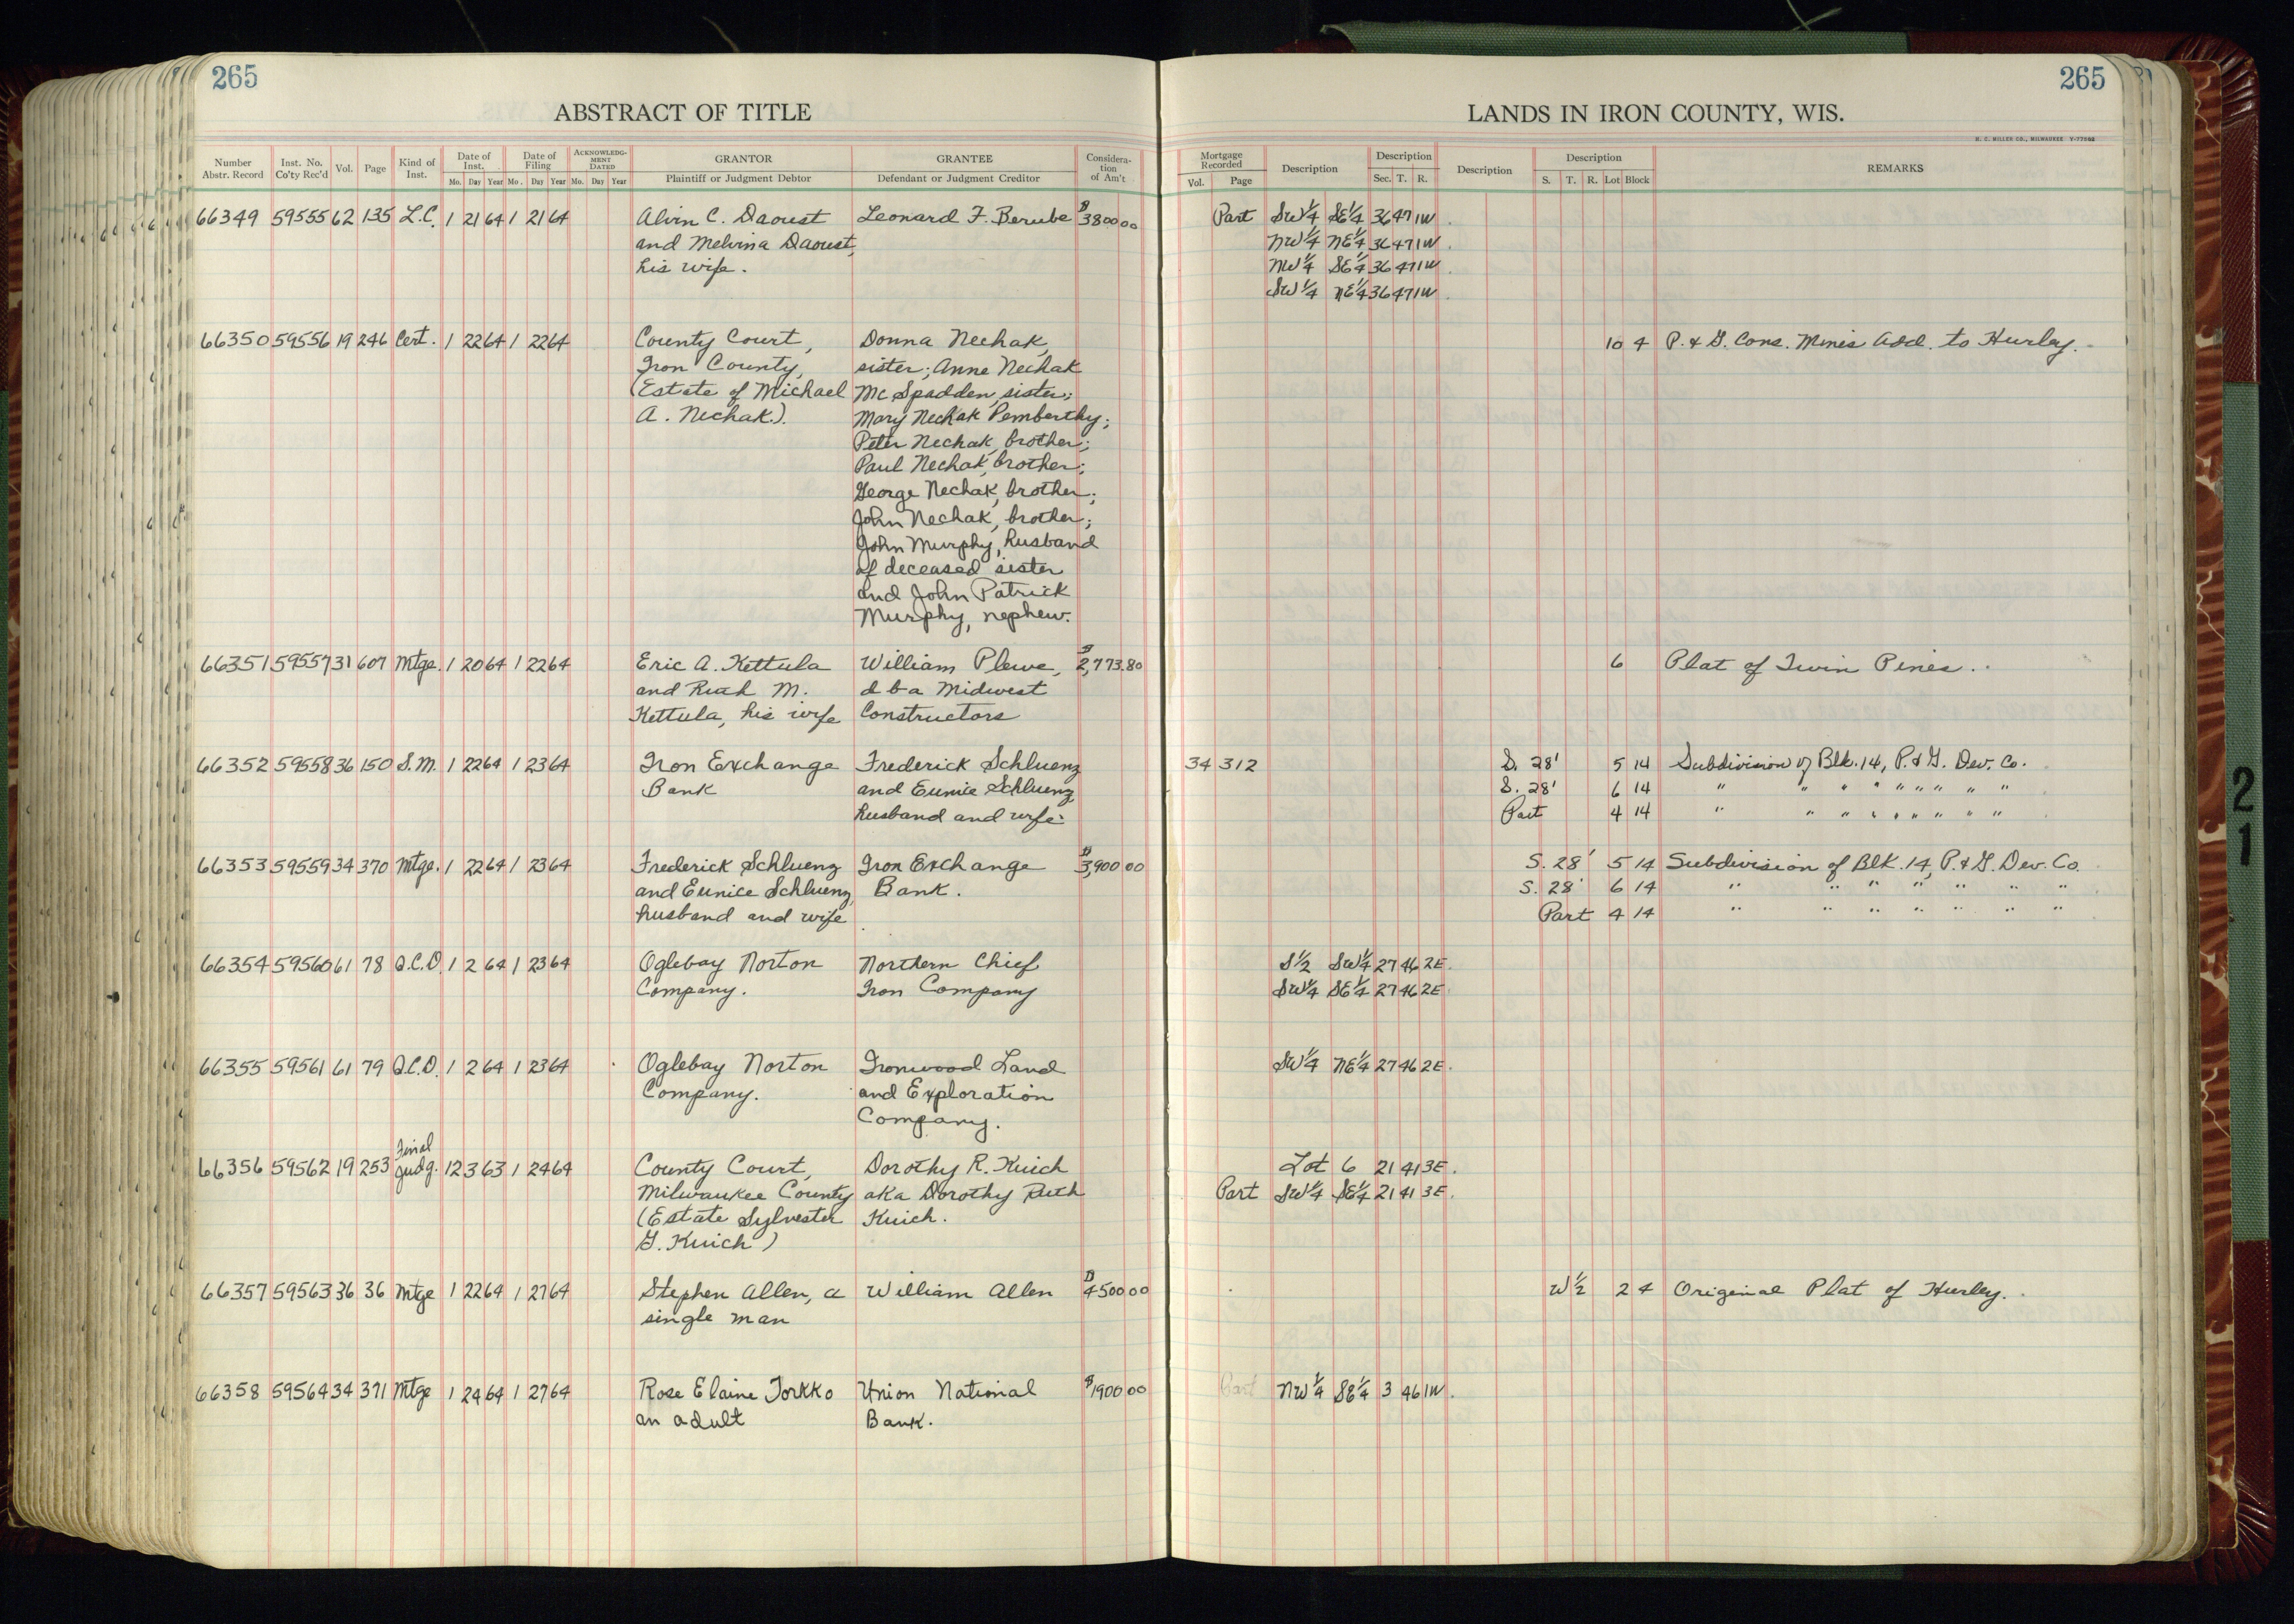 265
265
ABSTRACT OF TITLE
LANDS IN IRON COUNTY, WIS.
H. C. MILLER CO., MILWAUKEE
Number Abstr. Record Inst. No. Co'ty Rec'd Vol. Page Kind of Inst. Date of Inst. Mo. Day Year Date of Filing Mo. Day Year ACKNOWLEDGMENT DATED Mo. Day Year GRANTOR Plaintiff or Judgment Debtor GRANTEE Defendant or Judgment Creditor Consideration of Am't Mortgage Recorded Vol. Page Description Description Sec. T. R. Description Description S. T. R. Lot Block REMARKS
66349 59555 62 135 L.C. 1 21 64 1 21 64 Alvin C. Daoust Leonard F. Berube $3800 00 Part SW¼ SE¼ 36 47 1W
and Melvina Daoust, NW¼ NE¼ 36 47 1W
his wife. NW¼ SE¼ 36 47 1W
SW¼ NE¼ 36 47 1W
66350 59556 19 246 Cert. 1 22 64 1 22 64 County Court, Donna Nechak, 10 4 P. & G. Cons. Mines Add. to Hurley.
Iron County, sister; Anne Nechak
(Estate of Michael Mc Spadden, sister;
A. Nechak.) Mary Nechak Pemberthy;
Peter Nechak, brother;
Paul Nechak, brother;
George Nechak, brother;
John Nechak, brother;
John Murphy, husband
of deceased sister
and John Patrick
Murphy, nephew.
66351 59557 31 607 Mtge. 1 20 64 1 22 64 Eric A. Kettula William Plewe, $2,773.80 6 Plat of Twin Pines.
and Ruth M. d b a Midwest
Kettula, his wife Constructors
66352 59558 36 150 S.M. 1 22 64 1 23 64 Iron Exchange Frederick Schluenz 34 312 S. 28' 5 14 Subdivision of Blk. 14, P. & G. Dev. Co.
Bank and Eunice Schluenz, S. 28' 6 14 " " " " " " " " "
husband and wife. Part 4 14 " " " " " " " " "
66353 59559 34 370 Mtge. 1 22 64 1 23 64 Frederick Schluenz Iron Exchange $3,900 00 S. 28' 5 14 Subdivision of Blk. 14, P. & G. Dev. Co.
and Eunice Schluenz, Bank. S. 28' 6 14 " " " " " " "
husband and wife Part 4 14 " " " " " " "
66354 59560 61 78 Q.C.D. 1 2 64 1 23 64 Oglebay Norton Northern Chief S½ SW¼ 27 46 2E
Company. Iron Company SW¼ SE¼ 27 46 2E
66355 59561 61 79 Q.C.D. 1 2 64 1 23 64 Oglebay Norton Ironwood Land SW¼ NE¼ 27 46 2E
Company. and Exploration
Company.
Final
66356 59562 19 253 Judg. 12 3 63 1 24 64 County Court, Dorothy R. Kuich Lot 6 21 41 3E
Milwaukee County aka Dorothy Ruth Part SW¼ SE¼ 21 41 3E
(Estate Sylvester Kuich.
G. Kuich)
66357 59563 36 36 Mtge 1 22 64 1 27 64 Stephen Allen, a William Allen $4500 00 W½ 2 4 Original Plat of Hurley.
single man
66358 59564 34 371 Mtge 1 24 64 1 27 64 Rose Elaine Torkko Union National $1900 00 Part NW¼ SE¼ 3 46 1W
an adult Bank.
21